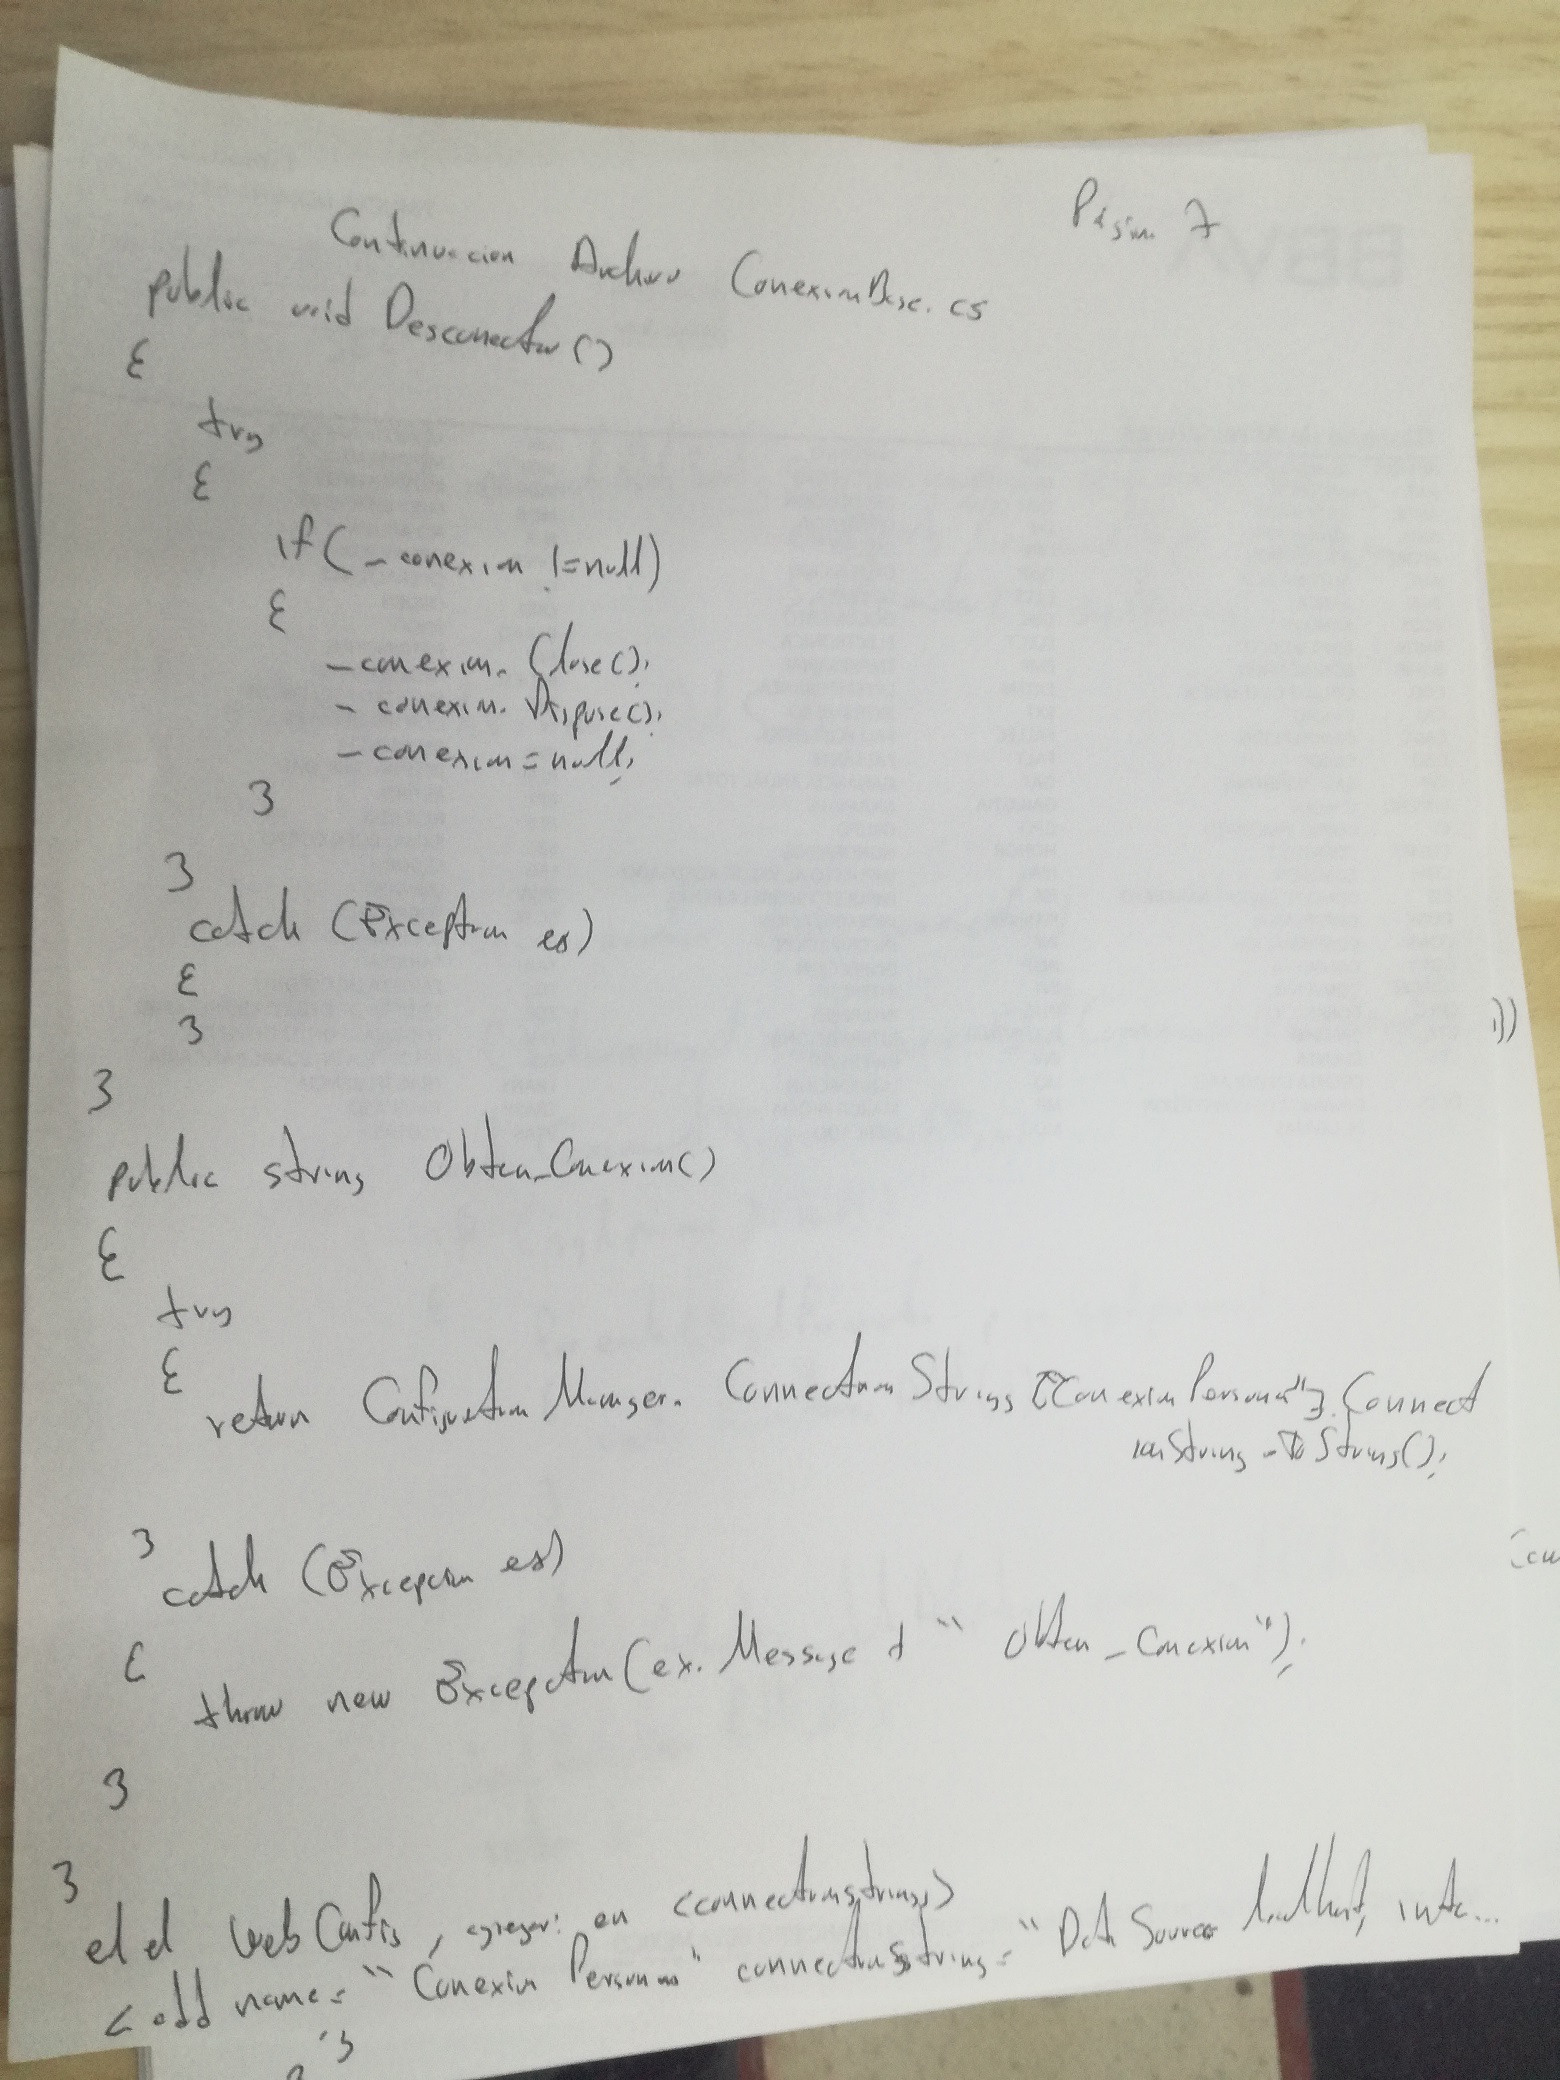 Página 7
Continuacion Archivo ConexionBase.cs
public void Desconectar()
{
try
{
if(_conexion !=null)
{
_conexion.Close();
_conexion.Dispose();
_conexion=null;
}
}
catch (Exception ex)
{
}
}
public string Obten_Conexion()
{
try
{
return ConfigurationManager.ConnectionStrings["ConexionPersonas"].Connect
ionString.ToString();
}
catch (Excepcion ex)
{
throw new Exception(ex.Message + " Obten_Conexion");
}
}
el el webConfig, agregar: en <connectionstrings>
<add name="Conexion Personas" connectionString="Data Source localhost, inte...